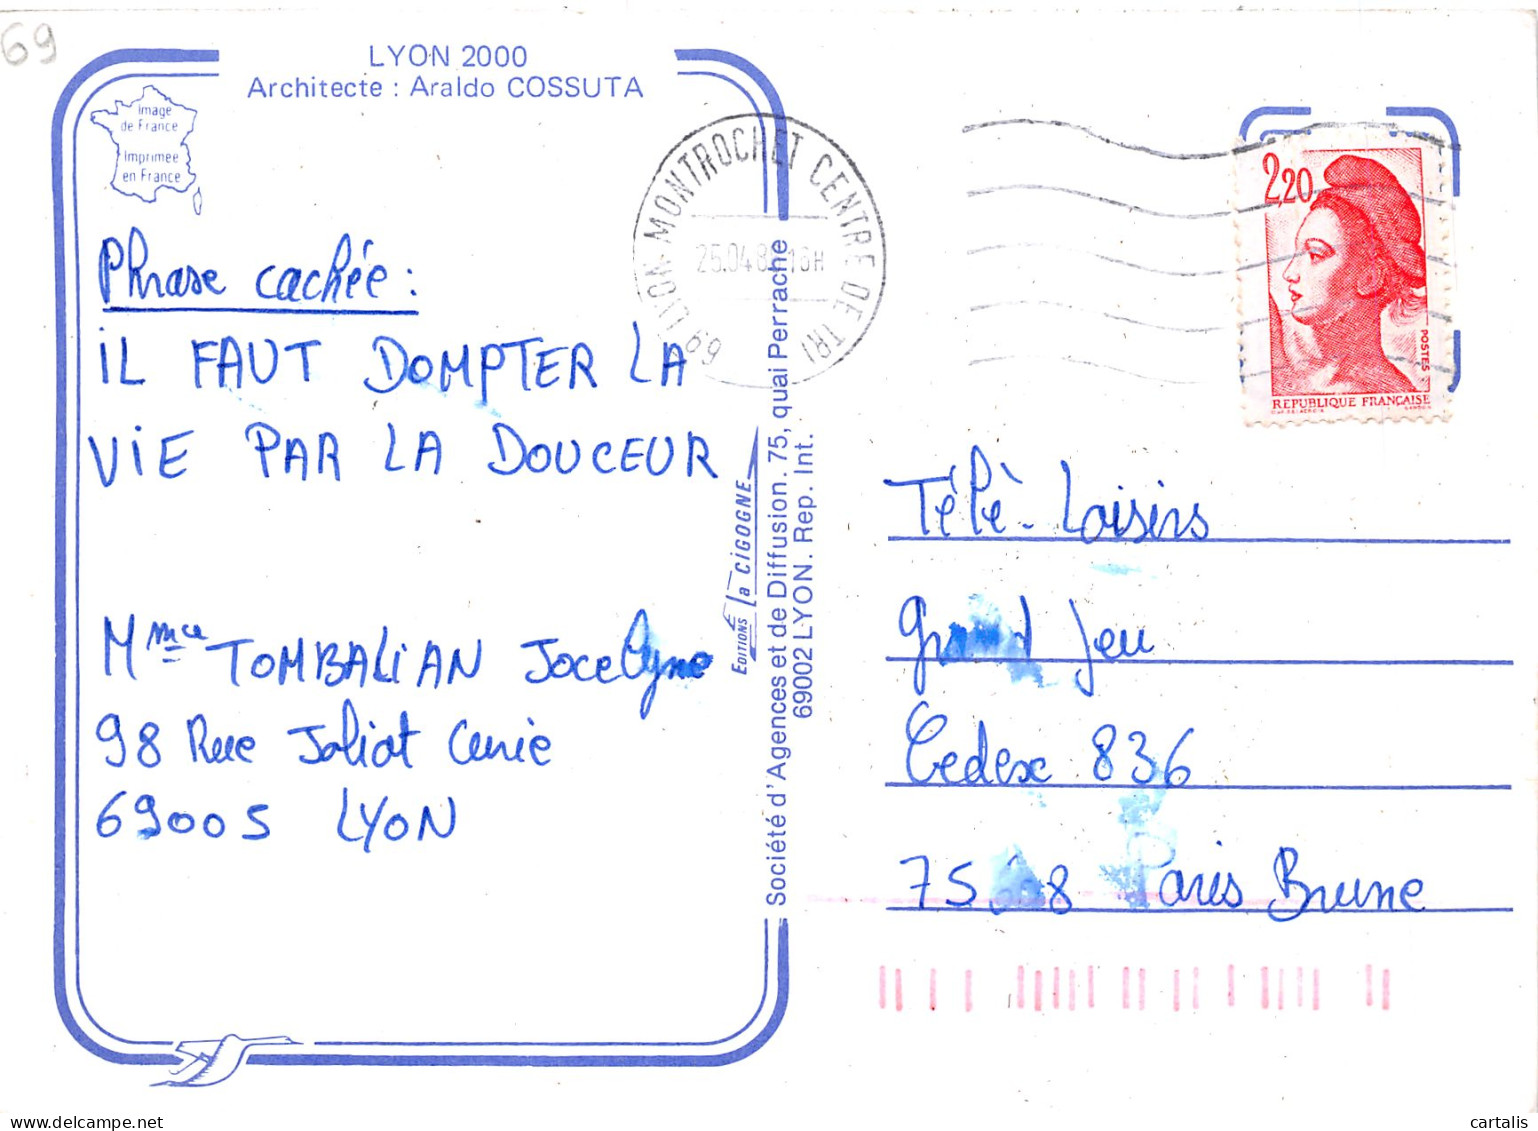 69
LYON 2000
Architecte : Araldo COSSUTA
Image
de France
Imprimée
en France
69 LYON-MONTROCHET CENTRE DE TRI
2,20
POSTES
REPUBLIQUE FRANÇAISE
Phrase cachée :
IL FAUT DOMPTER LA
VIE PAR LA DOUCEUR
Mme TOMBALIAN Jocelyne
98 Rue Joliot Curie
69005 LYON
EDITIONS La CIGOGNE
Société d'Agences et de Diffusion. 75, quai Perrache
69002 LYON. Rep. Int.
Télé-Loisirs
Grand Jeu
Cedex 836
Paris Brune
cartalis